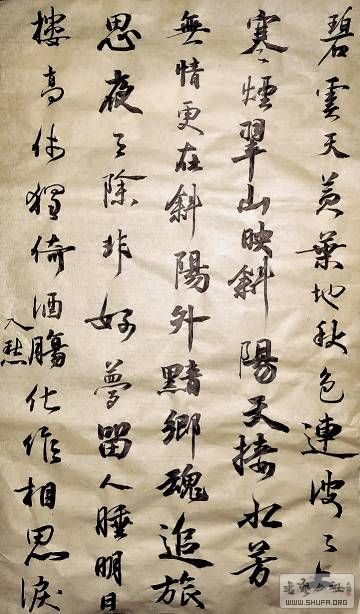 碧雲天黄葉地秋色連波々上
寒煙翠山映斜陽天接水芳
無情更在斜陽外黯鄉魂追旅
思夜々除非好夢留人睡明月
樓高休獨倚酒腸化作相思淚
入愁
WWW.SHUFA.ORG